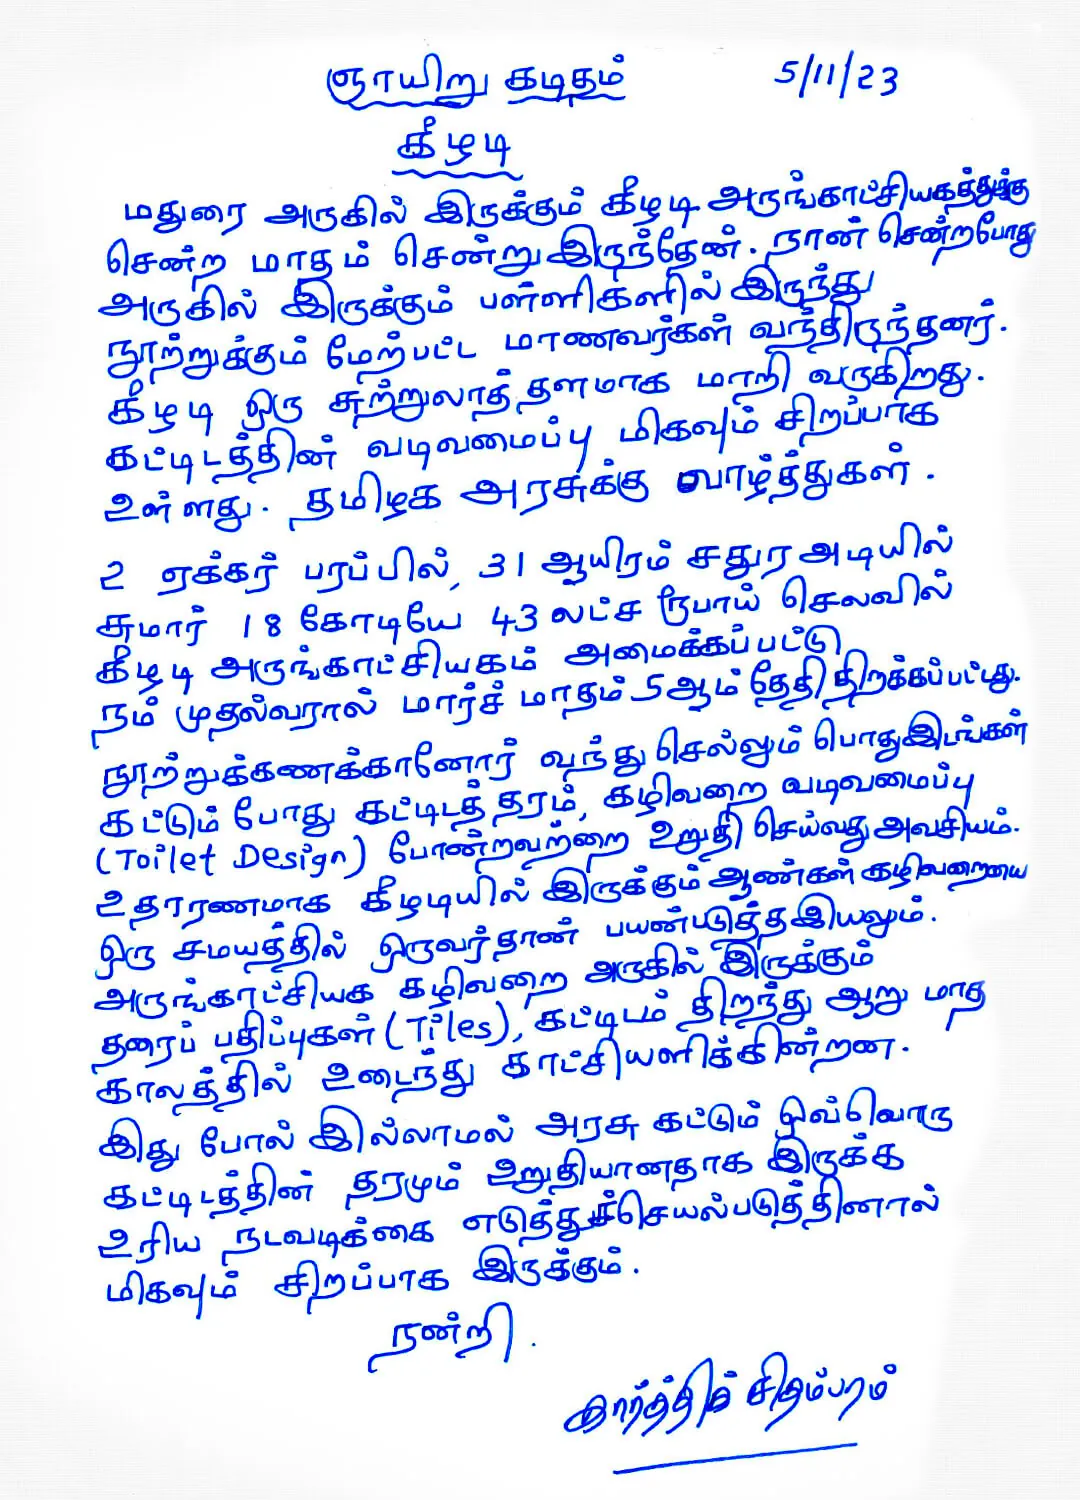 ஞாயிறு கடிதம் 5/11/23
கீழடி
மதுரை அருகில் இருக்கும் கீழடி அருங்காட்சியகத்துக்கு
சென்ற மாதம் சென்று இருந்தேன். நான் சென்றபோது
அருகில் இருக்கும் பள்ளிகளில் இருந்து
நூற்றுக்கும் மேற்பட்ட மாணவர்கள் வந்திருந்தனர்.
கீழடி ஒரு சுற்றுலாத்தளமாக மாறி வருகிறது.
கட்டிடத்தின் வடிவமைப்பு மிகவும் சிறப்பாக
உள்ளது. தமிழக அரசுக்கு வாழ்த்துகள்.
2 ஏக்கர் பரப்பில், 31 ஆயிரம் சதுர அடியில்
சுமார் 18 கோடியே 43 லட்ச ரூபாய் செலவில்
கீழடி அருங்காட்சியகம் அமைக்கப்பட்டு
நம் முதல்வரால் மார்ச் மாதம் 5ஆம் தேதி திறக்கப்பட்டது.
நூற்றுக்கணக்கானோர் வந்து செல்லும் பொதுஇடங்கள்
கட்டும் போது கட்டிடத் தரம், கழிவறை வடிவமைப்பு
(Toilet Design) போன்றவற்றை உறுதி செய்வது அவசியம்.
உதாரணமாக கீழடியில் இருக்கும் ஆண்கள் கழிவறையை
ஒரு சமயத்தில் ஒருவர்தான் பயன்படுத்த இயலும்.
அருங்காட்சியக கழிவறை அருகில் இருக்கும்
தரைப் பதிப்புகள் (Tiles), கட்டிடம் திறந்து ஆறு மாத
காலத்தில் உடைந்து காட்சியளிக்கின்றன.
இது போல் இல்லாமல் அரசு கட்டும் ஒவ்வொரு
கட்டிடத்தின் தரமும் உறுதியானதாக இருக்க
உரிய நடவடிக்கை எடுத்துச்செயல்படுத்தினால்
மிகவும் சிறப்பாக இருக்கும்.
நன்றி.
கார்த்திக் சிதம்பரம்